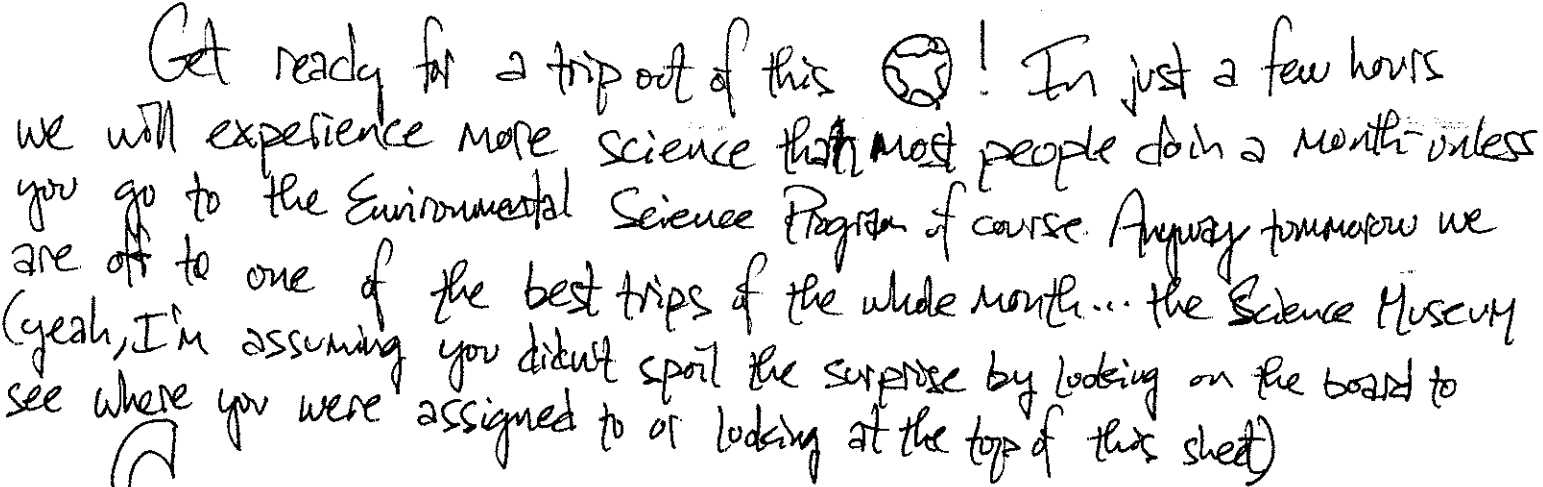 Get ready for a trip out of this ! In just a few hours
we will experience more science than most people do in a month-unless
you go to the Environmental Science Program of course. Anyway tommorow we
are off to one of the best trips of the whole month... the Science Museum
(yeah, I'm assuming you didn't spoil the surprise by looking on the board to
see where you were assigned to or looking at the top of this sheet)